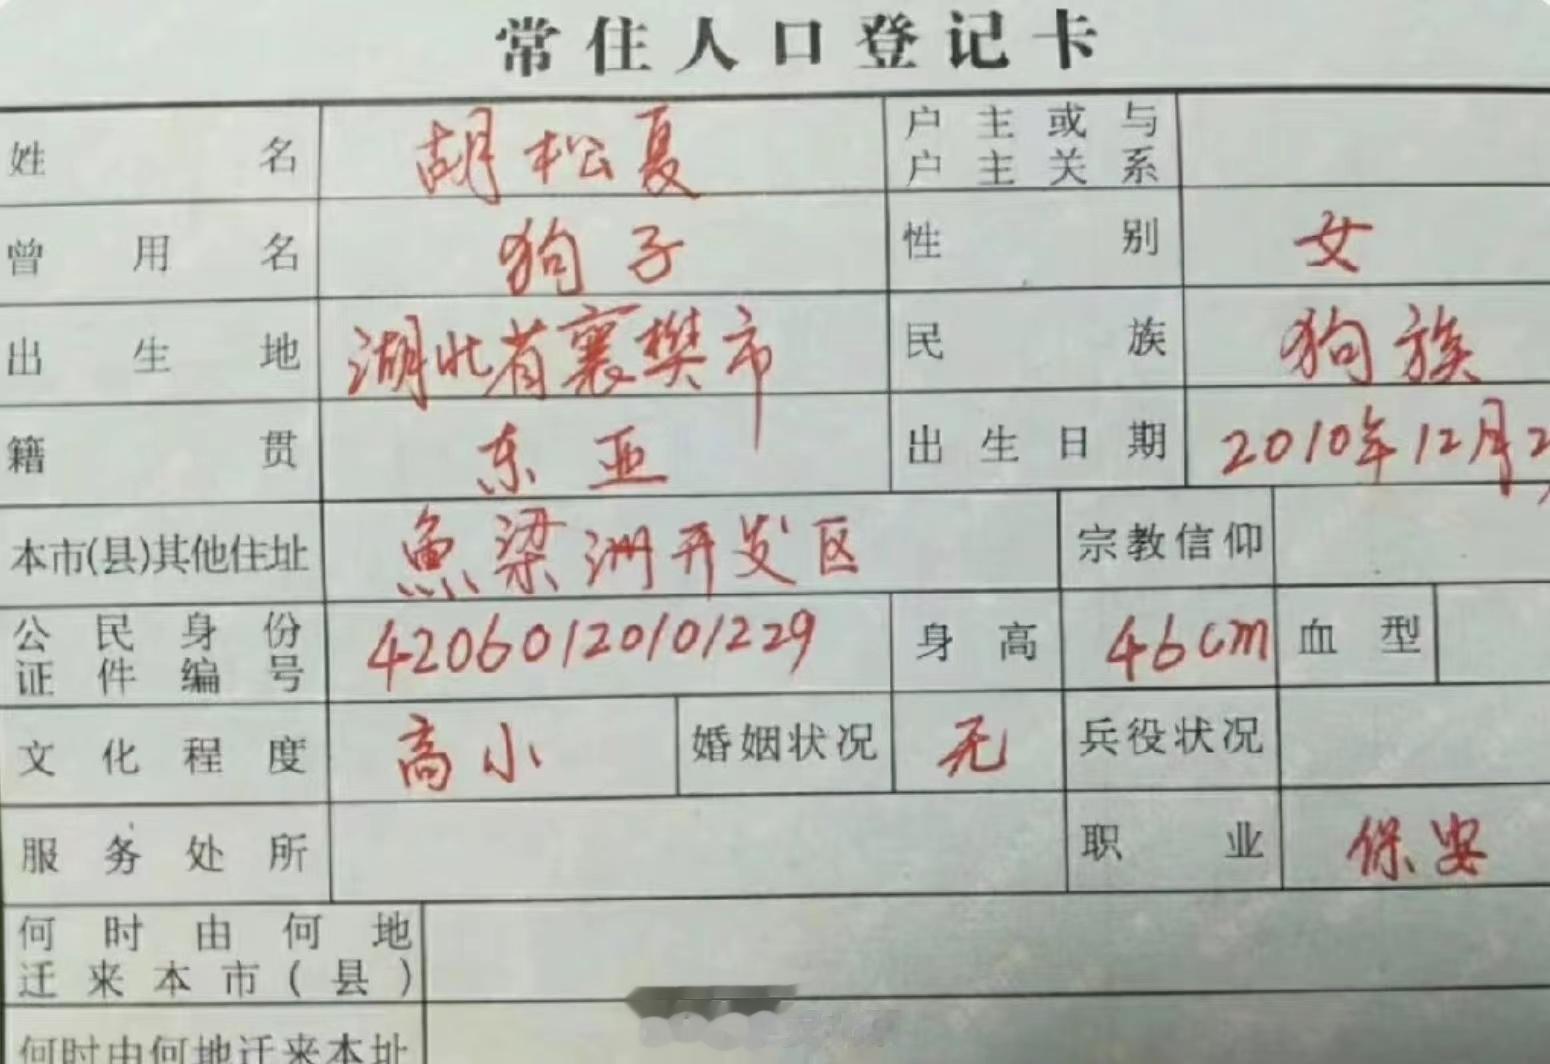 常住人口登记卡
姓名 胡松夏 户主或与户主关系
曾用名 狗子 性别 女
出生地 湖北省襄樊市 民族 狗族
籍贯 东亚 出生日期 2010年12月2
本市(县)其他住址 鱼梁洲开发区 宗教信仰
公民身份证件编号 42060120101229 身高 46cm 血型
文化程度 高小 婚姻状况 无 兵役状况
服务处所 职业 保安
何时由何地迁来本市(县)
何时由何地迁来本址